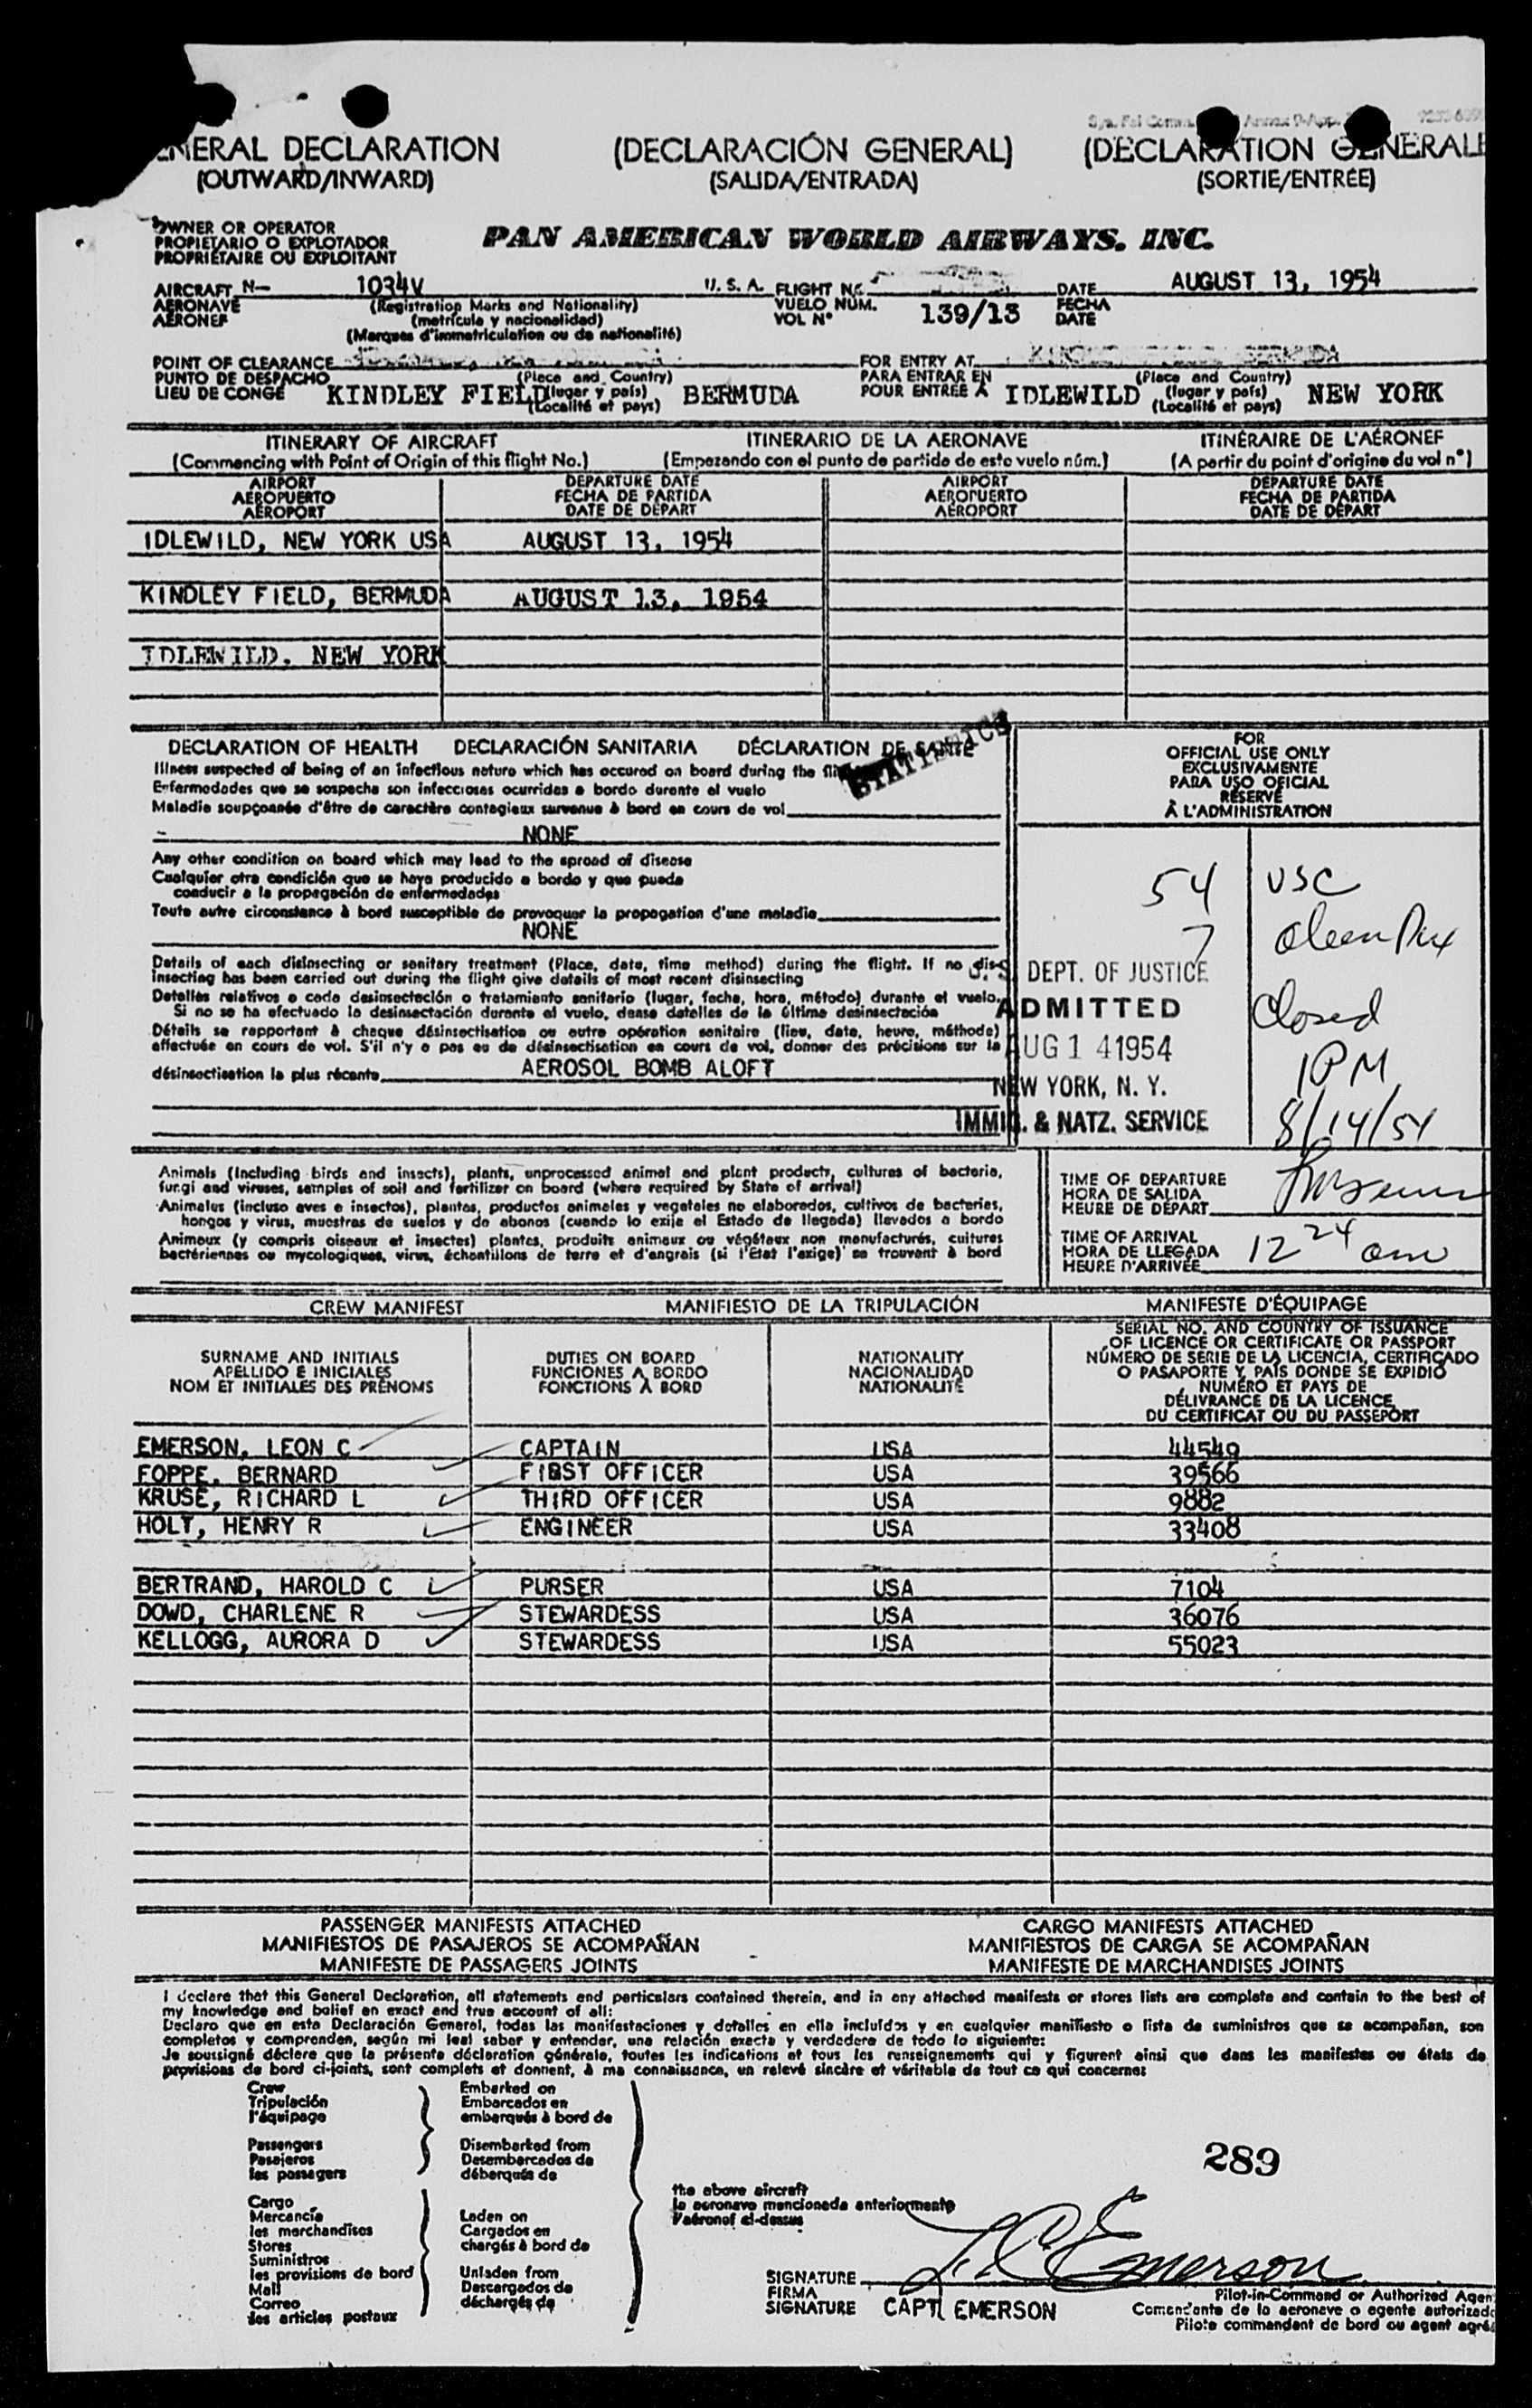 GENERAL DECLARATION (DECLARACIÓN GENERAL) (DÉCLARATION GÉNÉRALE
(OUTWARD/INWARD) (SALIDA/ENTRADA) (SORTIE/ENTRÉE)
OWNER OR OPERATOR
PROPIETARIO O EXPLOTADOR
PROPRIÉTAIRE OU EXPLOITANT
PAN AMERICAN WORLD AIRWAYS, INC.
AIRCRAFT N— 1034V U. S. A. FLIGHT No. DATE AUGUST 13, 1954
AERONAVE (Registration Marks and Nationality) VUELO NÚM. 139/13 FECHA
AÉRONEF (matrícula y nacionalidad) VOL N° DATE
(Marques d'immatriculation ou de nationalité)
POINT OF CLEARANCE FOR ENTRY AT
PUNTO DE DESPACHO (Place and Country) PARA ENTRAR EN (Place and Country)
LIEU DE CONGÉ KINDLEY FIELD (lugar y país) BERMUDA POUR ENTRÉE À IDLEWILD (lugar y país) NEW YORK
(Localité et pays) (Localité et pays)
ITINERARY OF AIRCRAFT ITINERARIO DE LA AERONAVE ITINÉRAIRE DE L'AÉRONEF
(Commencing with Point of Origin of this flight No.) (Empezando con el punto de partida de este vuelo núm.) (A partir du point d'origine du vol n°)
AIRPORT DEPARTURE DATE AIRPORT DEPARTURE DATE
AEROPUERTO FECHA DE PARTIDA AEROPUERTO FECHA DE PARTIDA
AÉROPORT DATE DE DÉPART AÉROPORT DATE DE DÉPART
IDLEWILD, NEW YORK USA AUGUST 13, 1954
KINDLEY FIELD, BERMUDA AUGUST 13, 1954
IDLEWILD, NEW YORK
DECLARATION OF HEALTH DECLARACIÓN SANITARIA DÉCLARATION DE SANTÉ
STATISTICS
Illness suspected of being of an infectious nature which has occured on board during the
Enfermedades que se sospecha son infecciosas ocurridas a bordo durante el vuelo
Maladie soupçonnée d'être de caractère contagieux survenue à bord en cours de vol
NONE
Any other condition on board which may lead to the spread of disease
Cualquier otra condición que se haya producido a bordo y que pueda
conducir a la propagación de enfermedades
Toute autre circonstance à bord susceptible de provoquer la propagation d'une maladie
NONE
Details of each disinsecting or sanitary treatment (Place, date, time method) during the flight. If no dis-
insecting has been carried out during the flight give details of most recent disinsecting
Detalles relativos a cada desinsectación o tratamiento sanitario (lugar, fecha, hora, método) durante el vuelo.
Si no se ha efectuado la desinsectación durante el vuelo, dense detalles de la última desinsectación
Détails se rapportant à chaque désinsectisation ou autre opération sanitaire (lieu, date, heure, méthode)
effectuée en cours de vol. S'il n'y a pas eu de désinsectisation en cours de vol, donner des précisions sur la
désinsectisation la plus récente AEROSOL BOMB ALOFT
FOR
OFFICIAL USE ONLY
EXCLUSIVAMENTE
PARA USO OFICIAL
RÉSERVÉ
À L'ADMINISTRATION
54 USC
7
Closed
1PM
8/14/54
S. DEPT. OF JUSTICE
ADMITTED
AUG 14 1954
NEW YORK, N. Y.
IMMIG. & NATZ. SERVICE
Animals (Including birds and insects), plants, unprocessed animal and plant products, cultures of bacteria,
fungi and viruses, samples of soil and fertilizer on board (where required by State of arrival)
Animales (incluso aves e insectos), plantas, productos animales y vegetales no elaborados, cultivos de bacterias,
hongos y virus, muestras de suelos y de abonos (cuando lo exija el Estado de llegada) llevados a bordo
Animaux (y compris oiseaux et insectes) plantes, produits animaux ou végétaux non manufacturés, cultures
bactériennes ou mycologiques, virus, échantillons de terre et d'engrais (si l'État l'exige) se trouvant à bord
TIME OF DEPARTURE
HORA DE SALIDA
HEURE DE DÉPART
TIME OF ARRIVAL
HORA DE LLEGADA 12 24 am
HEURE D'ARRIVÉE
CREW MANIFEST MANIFIESTO DE LA TRIPULACIÓN MANIFESTE D'ÉQUIPAGE
SURNAME AND INITIALS
APELLIDO E INICIALES
NOM ET INITIALES DES PRÉNOMS
DUTIES ON BOARD
FUNCIONES A BORDO
FONCTIONS À BORD
NATIONALITY
NACIONALIDAD
NATIONALITÉ
SERIAL NO. AND COUNTRY OF ISSUANCE
OF LICENCE OR CERTIFICATE OR PASSPORT
NÚMERO DE SERIE DE LA LICENCIA, CERTIFICADO
O PASAPORTE Y PAÍS DONDE SE EXPIDIÓ
NUMÉRO ET PAYS DE
DÉLIVRANCE DE LA LICENCE,
DU CERTIFICAT OU DU PASSEPORT
EMERSON, LEON C CAPTAIN USA 44549
FOPPE, BERNARD FIRST OFFICER USA 39566
KRUSE, RICHARD L THIRD OFFICER USA 9882
HOLT, HENRY R ENGINEER USA 33408
BERTRAND, HAROLD C PURSER USA 7104
DOWD, CHARLENE R STEWARDESS USA 36076
KELLOGG, AURORA D STEWARDESS USA 55023
PASSENGER MANIFESTS ATTACHED CARGO MANIFESTS ATTACHED
MANIFIESTOS DE PASAJEROS SE ACOMPAÑAN MANIFIESTOS DE CARGA SE ACOMPAÑAN
MANIFESTE DE PASSAGERS JOINTS MANIFESTE DE MARCHANDISES JOINTS
I declare that this General Declaration, all statements and particulars contained therein, and in any attached manifests or stores lists are complete and contain to the best of
my knowledge and belief an exact and true account of all:
Declaro que en esta Declaración General, todas las manifestaciones y detalles en ella incluídos y en cualquier manifiesto o lista de suministros que se acompañan, son
completos y comprenden, según mi leal saber y entender, una relación exacta y verdadera de todo lo siguiente:
Je soussigné déclare que la présente déclaration générale, toutes les indications et tous les renseignements qui y figurent ainsi que dans les manifestes ou états de
provisions de bord ci-joints, sont complets et donnent, à ma connaissance, un relevé sincère et véritable de tout ce qui concerne:
Crew
Tripulación
l'équipage
Passengers
Pasajeros
les passagers
Cargo
Mercancía
les marchandises
Stores
Suministros
les provisions de bord
Mail
Correo
les articles postaux
Embarked on
Embarcados en
embarqués à bord de
Disembarked from
Desembarcados de
débarqués de
Laden on
Cargados en
chargés à bord de
Unladen from
Descargados de
déchargés de
the above aircraft
la aeronave mencionada anteriormente
l'aéronef ci-dessus
289
L. C. Emerson
SIGNATURE
FIRMA
SIGNATURE CAPT. EMERSON
Pilot-in-Command or Authorized Agen
Comandante de la aeronave o agente autorizado
Pilote commandant de bord ou agent agré